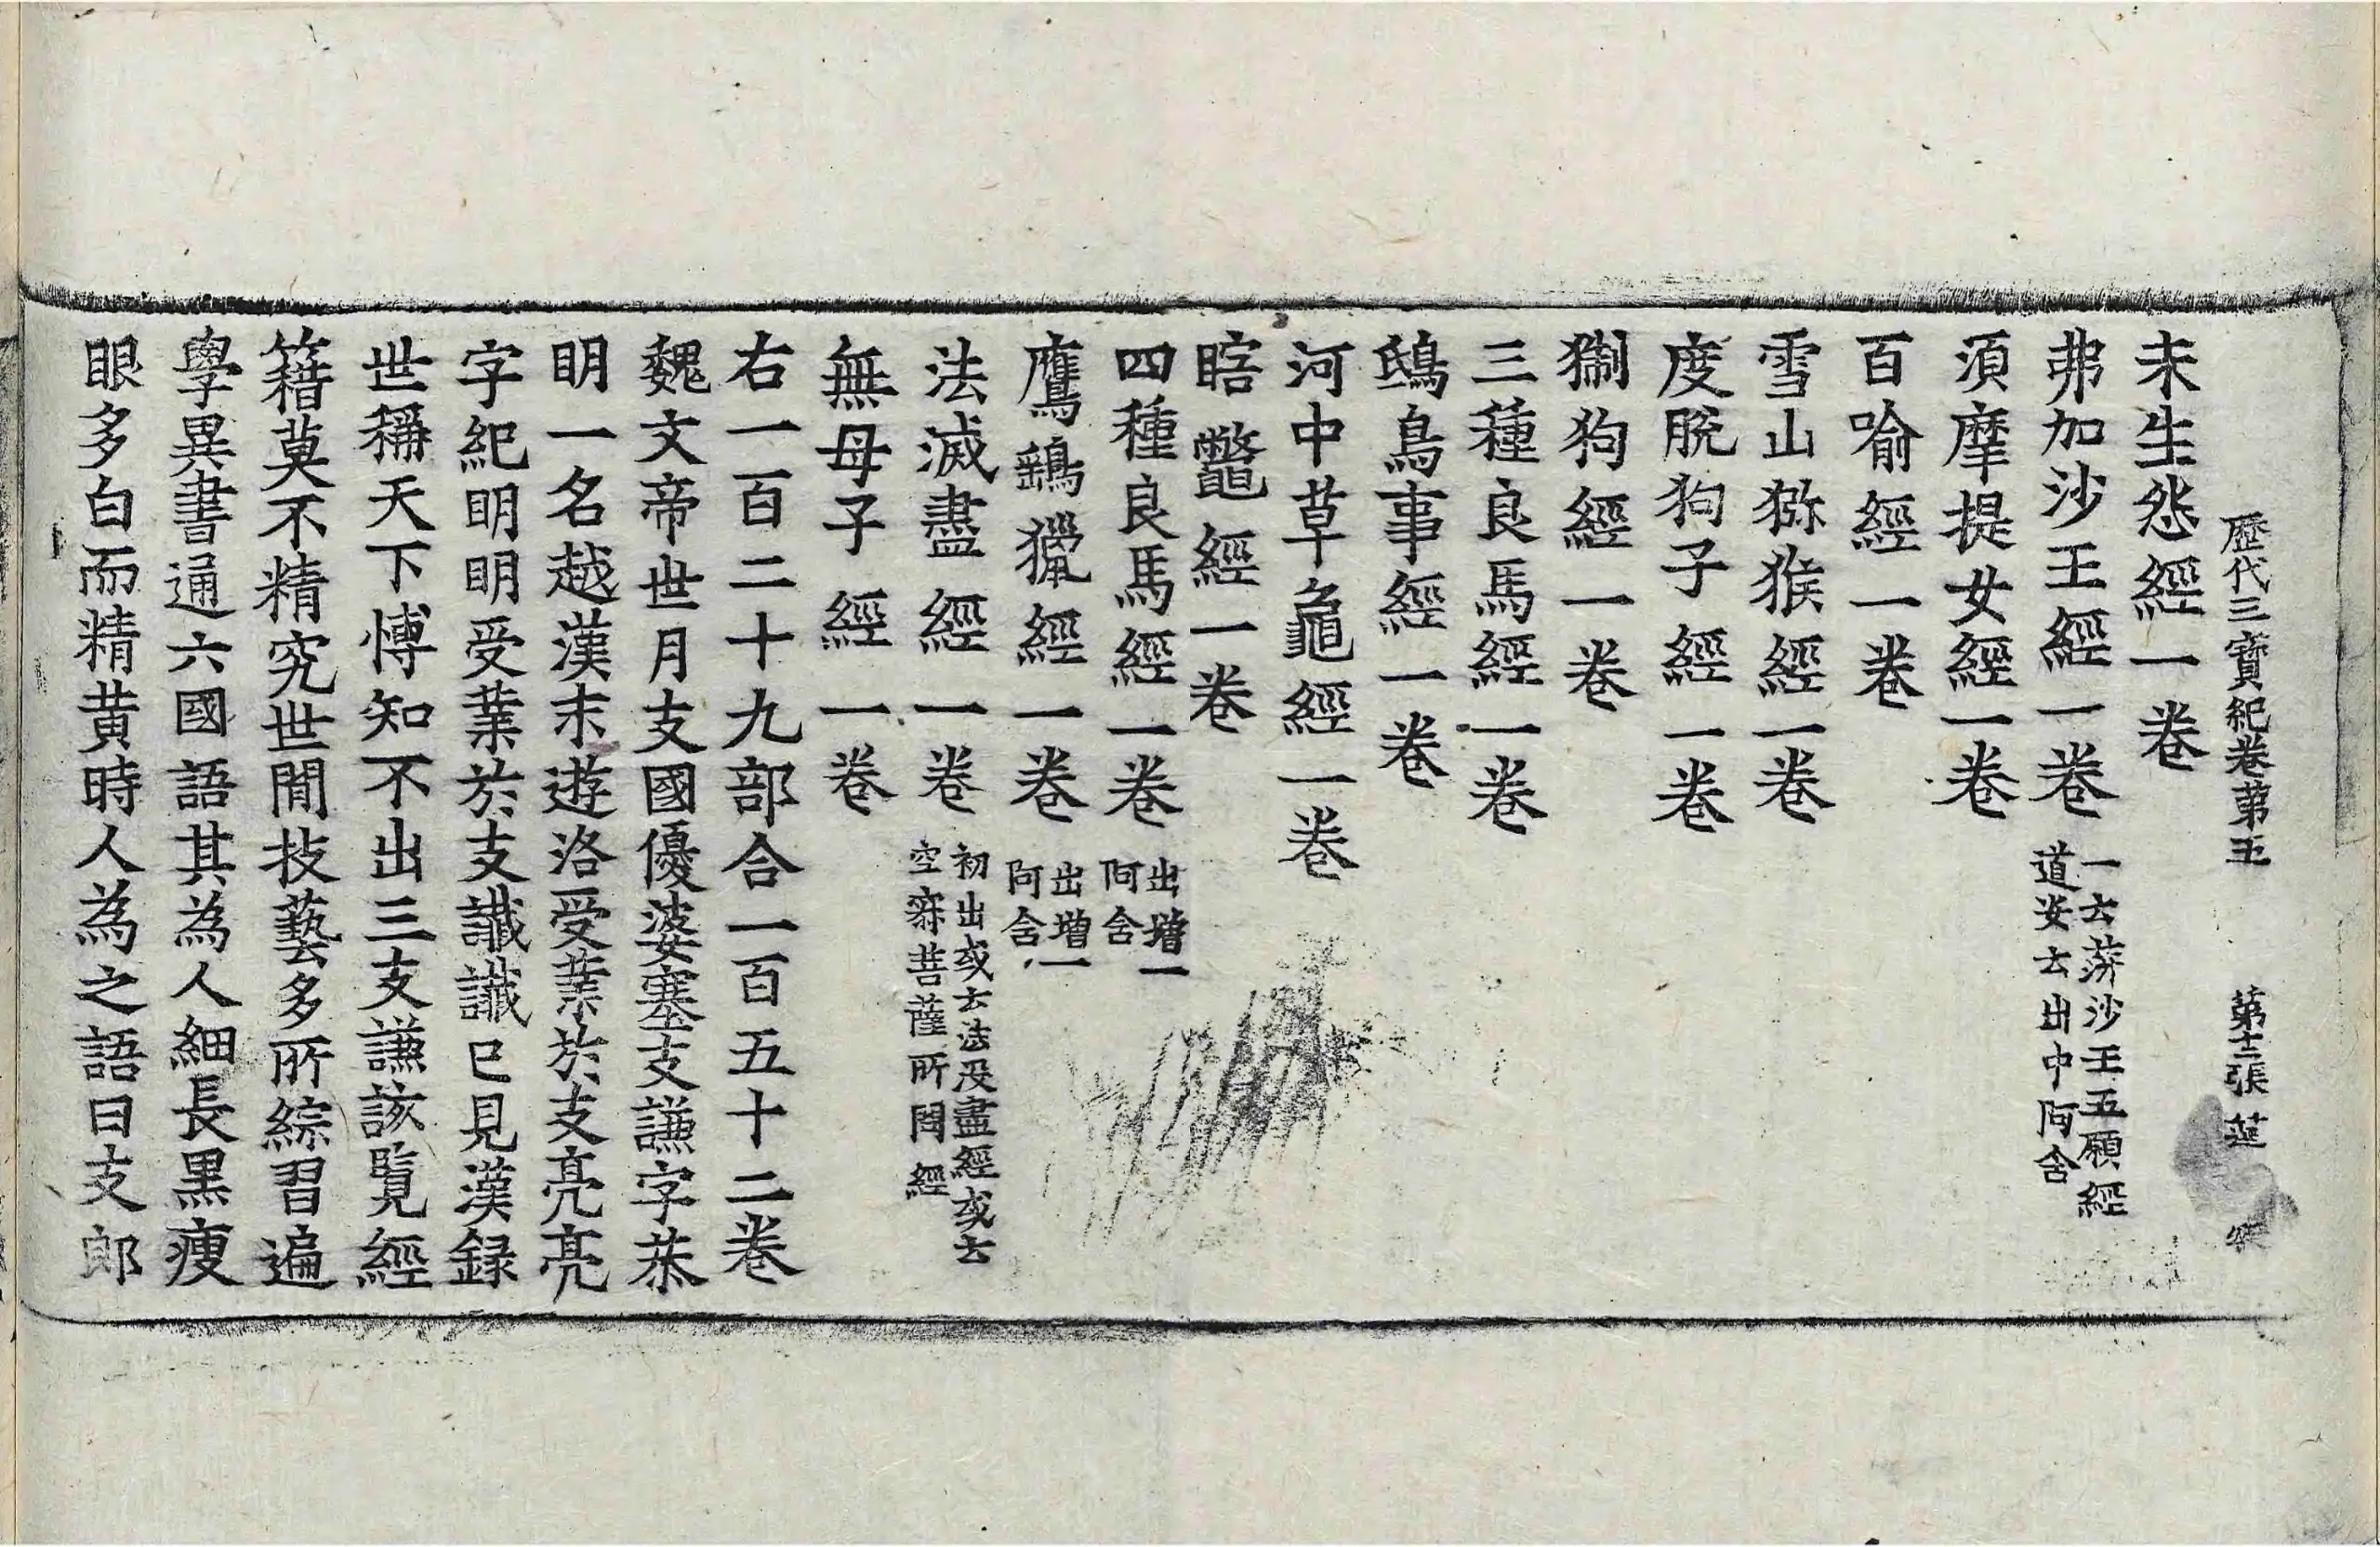 歷代三寶紀卷第五 第十三張 莚
未生怨經一卷
弗加沙王經一卷 一云蓱沙王五願經
道安云出中阿含
須摩提女經一卷
百喻經一卷
雪山猕猴經一卷
度脫狗子經一卷
猘狗經一卷
三種良馬經一卷
鴟鳥事經一卷
河中草龜經一卷
瞎鼈經一卷
四種良馬經一卷 出增一
阿含
鷹鷂獵經一卷 出增一
阿含
法滅盡經一卷 初出或云法没盡經或云
空寂菩薩所問經
無母子經一卷
右一百二十九部合一百五十二卷
魏文帝世月支國優婆塞支謙字恭
明一名越漢末遊洛受業於支亮亮
字紀明明受業於支讖讖已見漢録
世稱天下博知不出三支謙該覽經
籍莫不精究世間技藝多所綜習遍
學異書通六國語其為人細長黑瘦
眼多白而精黄時人為之語曰支郎